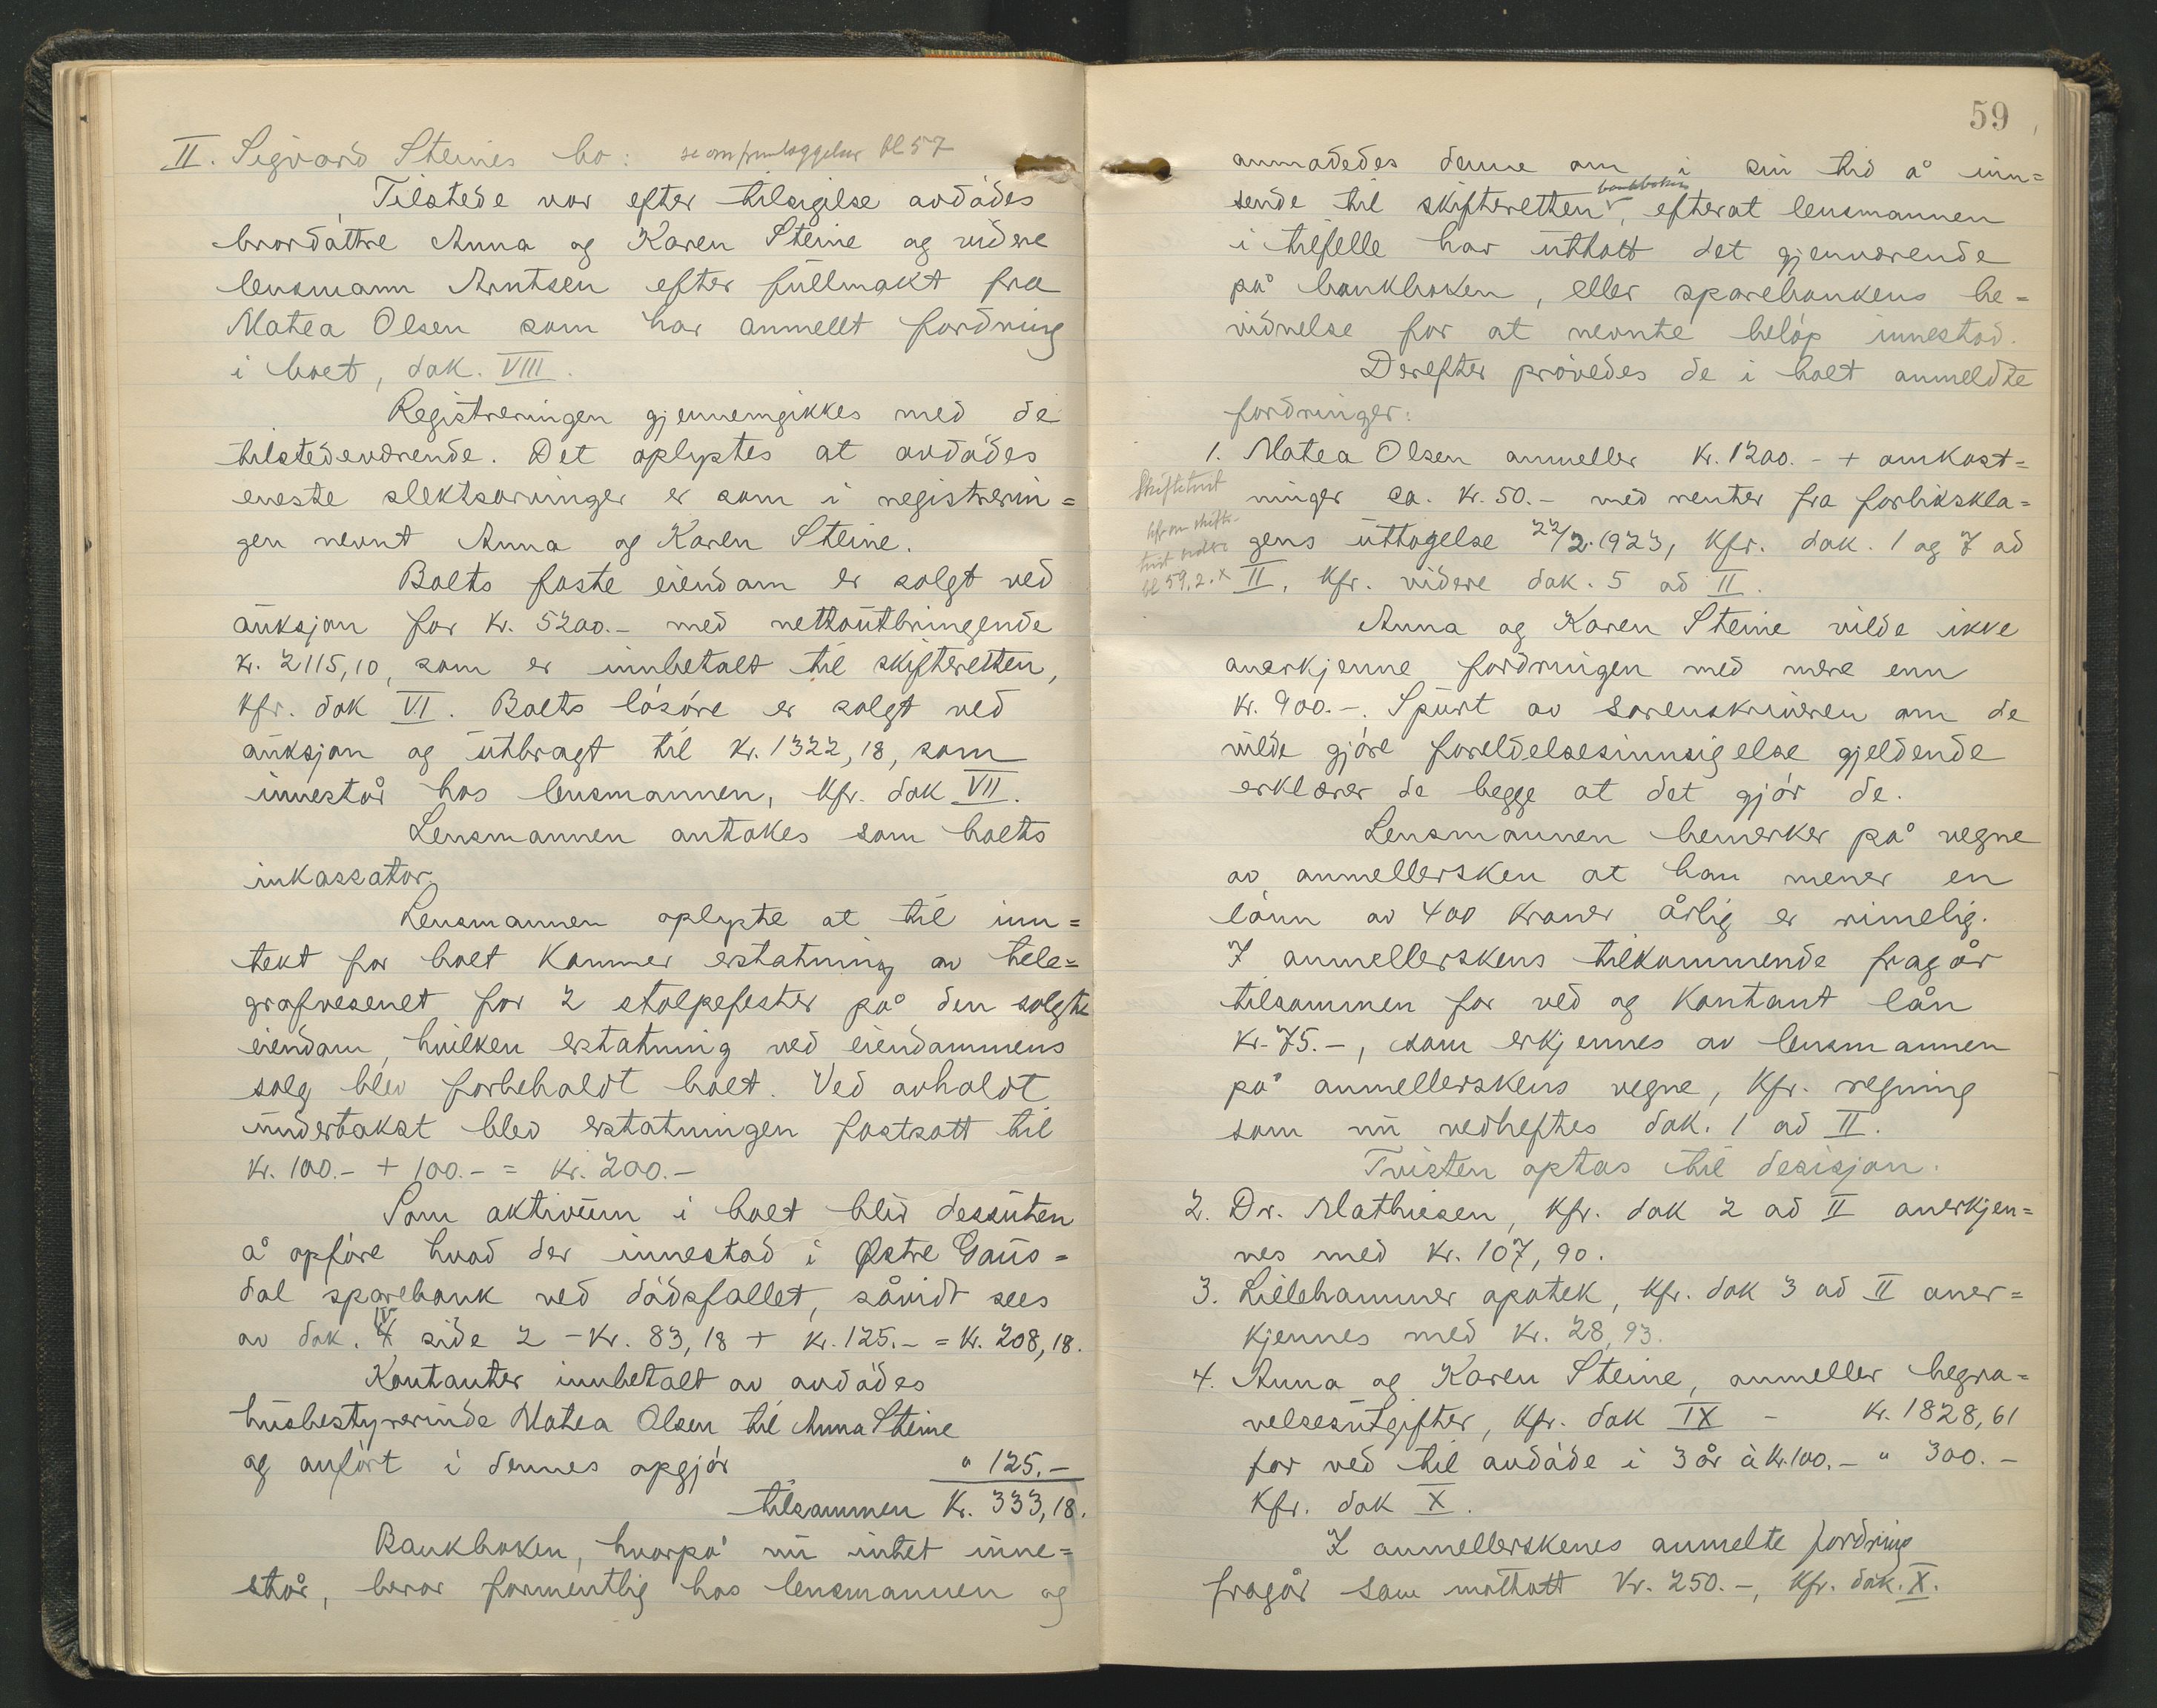 II. Sigvard Steines bo: se om fremleggelser bl 57
Tilstede var efter tilsigelse avdödes
brordöttre Anna og Karen Steine og videre
lensmann Arntsen efter fullmakt fra
Matea Olsen som har anmellt fordring
i boet, dok. VIII.
Registreringen gjennemgikkes med de
tilstedeværende. Det oplystes at avdödes
eneste slektsarvinger er som i registrerin=
gen nevnt Anna og Karen Steine.
Boets faste eiendom er solgt ved
auksjon for kr. 5200.- med nettoutbringende
kr. 2115,10, som er innbetalt til skifteretten,
kfr. dok VI. Boets lösöre er solgt ved
auksjon og utbragt til kr. 1322,18, som
innestår hos lensmannen, kfr. dok VII.
Lensmannen antokes som boets
inkassator.
Lensmannen oplyste at til inn=
tekt for boet kommer erstatning av tele=
grafvesenet for 2 stolpefester på den solgte
eiendom, hvilken erstatning ved eiendommens
salg blev forbeholdt boet. Ved avholdt
undertakst blev erstatningen fastsatt til
kr. 100.- + 100.- = kr. 200.-
Som aktivum i boet blir dessuten
å opföre hvad der innestod i Østre Gaus=
dal sparebank ved dödsfallet, såvidt sees
av dok. IV side 2 - kr. 83,18 + kr. 125.- = kr. 208,18.
Kontanter innbetalt av avdödes
husbestyrerinde Matea Olsen til Anna Steine
og anfört i dennes opgjör " 125.-
tilsammen kr. 333,18.
Bankboken, hvorpå nu intet inne=
står, beror formentlig hos lensmannen og
59
anmodedes denne om i sin tid å inn=
bankboken
sende til skifteretten, efterat lensmannen
i tilfelle har uttatt det gjenværende
på bankboken, eller sparebankens be=
vidnelse for at nevnte belöp innestod.
Derefter prövedes de i boet anmeldte
fordringer:
1. Matea Olsen anmeller kr. 1200.- + omkost=
Skiftetvist
ninger ca. kr. 50.- med renter fra forlikskla=
kfr om skifte-
gens uttagelse 22/2. 1923, kfr. dok. 1 og 7 ad
tvist videre
bl 59, 2. x II, kfr. videre dok. 5 ad II.
Anna og Karen Steine vilde ikke
anerkjenne fordringen med mere enn
kr. 900.-. Spurt av sorenskriveren om de
vilde gjöre foreldelsesinnsigelse gjeldende
erklærer de begge at det gjör de.
Lensmannen bemerker på vegne
av anmellersken at han mener en
lönn av 400 kroner årlig er rimelig.
I anmellerskens tilkommende fragår
tilsammen for ved og kontant lån
kr. 75.-, som erkjennes av lensmannen
på anmellerskens vegne, kfr. regning
som nu vedheftes dok. 1 ad II.
Tvisten optas til desisjon.
2. Dr. Mathiesen, kfr. dok 2 ad II anerkjen=
nes med kr. 107,90.
3. Lillehammer apotek, kfr. dok 3 ad II aner=
kjennes med kr. 28,93.
4. Anna og Karen Steine, anmeller begra=
velsesutgifter, kfr. dok IX - kr. 1828,61
for ved til avdöde i 3 år à kr. 100.- " 300.-
kfr. dok X.
I anmellerskenes anmelte fordring
fragår som mottatt kr. 250.-, kfr. dok. X.